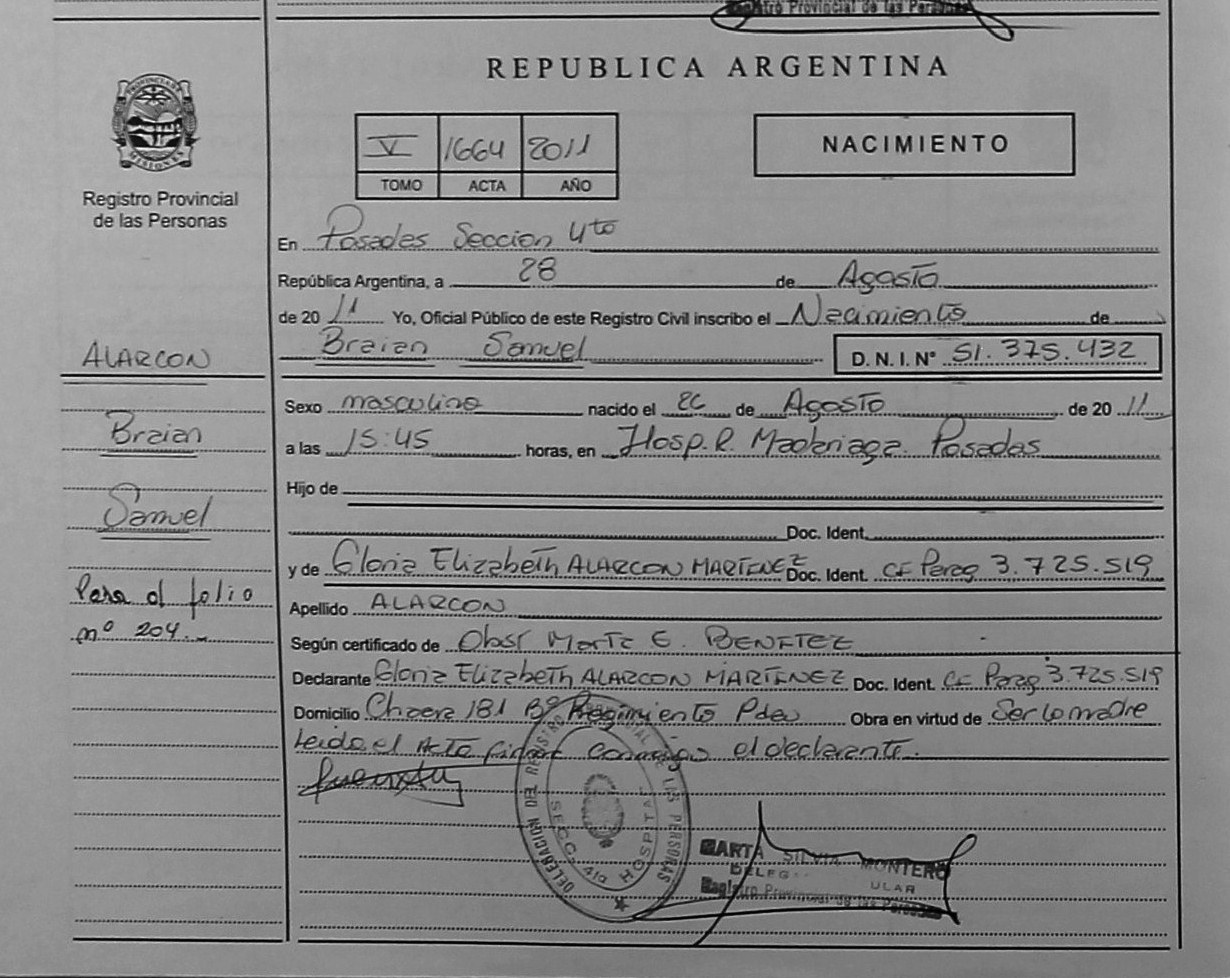 Registro Provincial de las Personas
REPUBLICA ARGENTINA
PROVINCIA DE
MISIONES
Registro Provincial
de las Personas
V 1664 2011
TOMO ACTA AÑO
NACIMIENTO
En Posadas Seccion 4ta
República Argentina, a 28 de Agosto
de 2011 Yo, Oficial Público de este Registro Civil inscribo el Nacimiento de
Braian Samuel D. N. I. N° 51.375.432
ALARCON
Braian
Samuel
Pasa al folio
nº 204.
Sexo masculino nacido el de Agosto de 2011
a las 15:45 horas, en Hosp. R. Madariaga. Posadas
Hijo de
Doc. Ident.
y de Gloria Elizabeth ALARCON MARTINEZ Doc. Ident. Parag 3.725.519
Apellido ALARCON
Según certificado de Obst Marta E. BENITEZ
Declarante Gloria Elizabeth ALARCON MARTINEZ Doc. Ident. Parag 3.725.519
Domicilio Chacra 181 Bº Regimiento Pdas Obra en virtud de Ser la madre
Leida el Acta firma conmigo el declarante.
DELEGACION DEL REGISTRO PROVINCIAL DE LAS PERSONAS
SECC. 4ta HOSPITAL
MARTA SILVIA MONTERO
Registro Provincial de las Personas